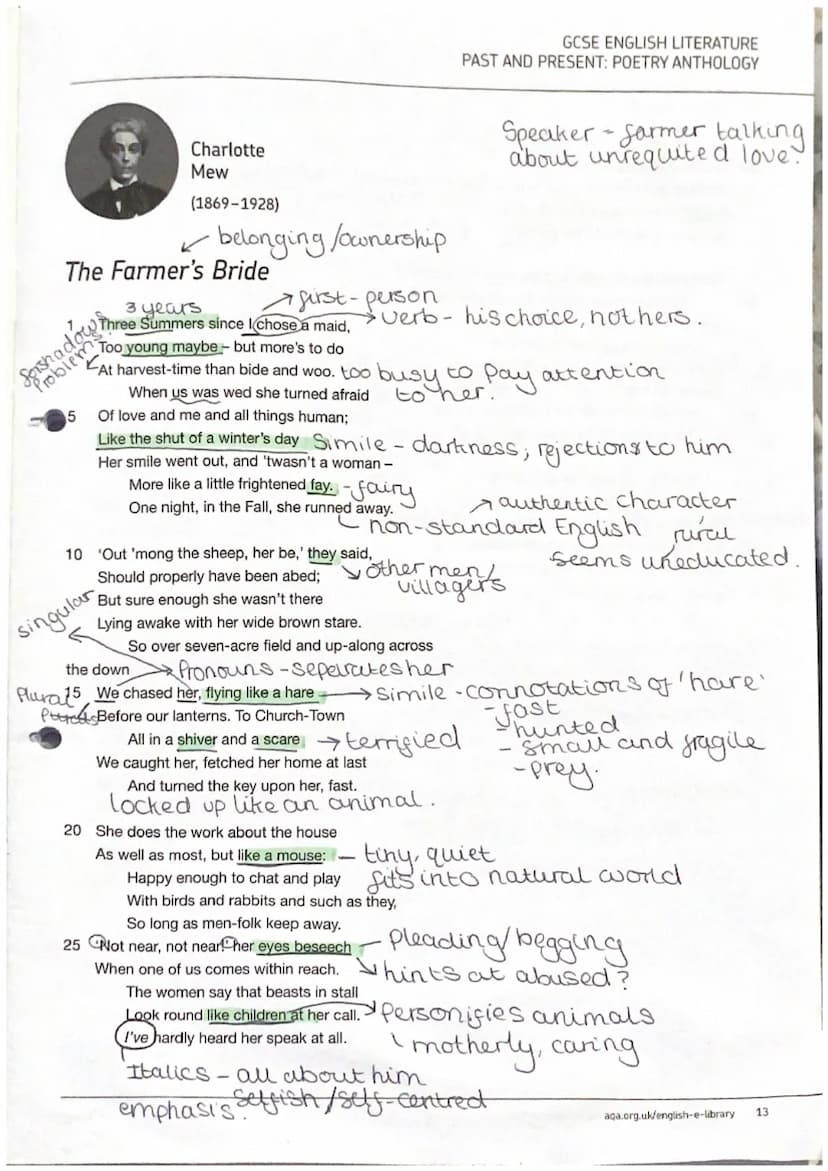 GCSE ENGLISH LITERATURE
PAST AND PRESENT: POETRY ANTHOLOGY
Speaker - farmer talking
about unrequited love.
Charlotte
Mew
(1869–1928)
belonging/ownership
The Farmer's Bride
3 years
first-person
1 Three Summers since I chose a maid,
verb - his choice, not hers.
Too young maybe – but more's to do
forshadows
problems
At harvest-time than bide and woo.
too busy to pay attention
to her.
When us was wed she turned afraid
5 Of love and me and all things human;
Like the shut of a winter's day
Simile - darkness, rejections to him
Her smile went out, and 'twasn't a woman –
More like a little frightened fay.
- fairy
One night, in the Fall, she runned away.
authentic character
non-standard English
rural
seems uneducated.
10 'Out 'mong the sheep, her be,' they said,
other men/
villagers
Should properly have been abed;
But sure enough she wasn't there
singular
Lying awake with her wide brown stare.
So over seven-acre field and up-along across
the down
Pronouns - seperates her
Plural
15 We chased her, flying like a hare
Simile - connotations of 'hare'
- fast
- hunted
- small and fragile
- prey.
Before our lanterns. To Church-Town
All in a shiver and a scare
terrified
We caught her, fetched her home at last
And turned the key upon her, fast.
locked up like an animal.
20 She does the work about the house
As well as most, but like a mouse:
- tiny, quiet
fits into natural world
Happy enough to chat and play
With birds and rabbits and such as they,
So long as men-folk keep away.
25 'Not near, not near!' her eyes beseech
Pleading/begging
When one of us comes within reach.
hints at abused?
The women say that beasts in stall
Look round like children at her call.
Personifies animals
motherly, caring
I've hardly heard her speak at all.
Italics - all about him
emphasis.
selfish/self-centred
aqa.org.uk/english-e-library 13